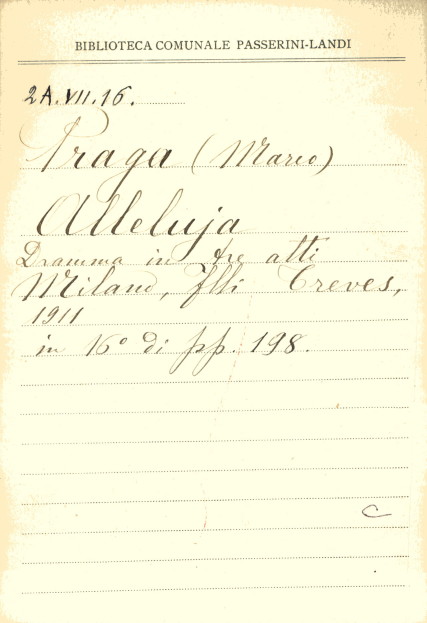 BIBLIOTECA COMUNALE PASSERINI-LANDI
2A.VII.16.
Praga (Marco)
Alleluja
Dramma in tre atti
Milano, f.lli Treves,
1911
in 16° di pp. 198.
C